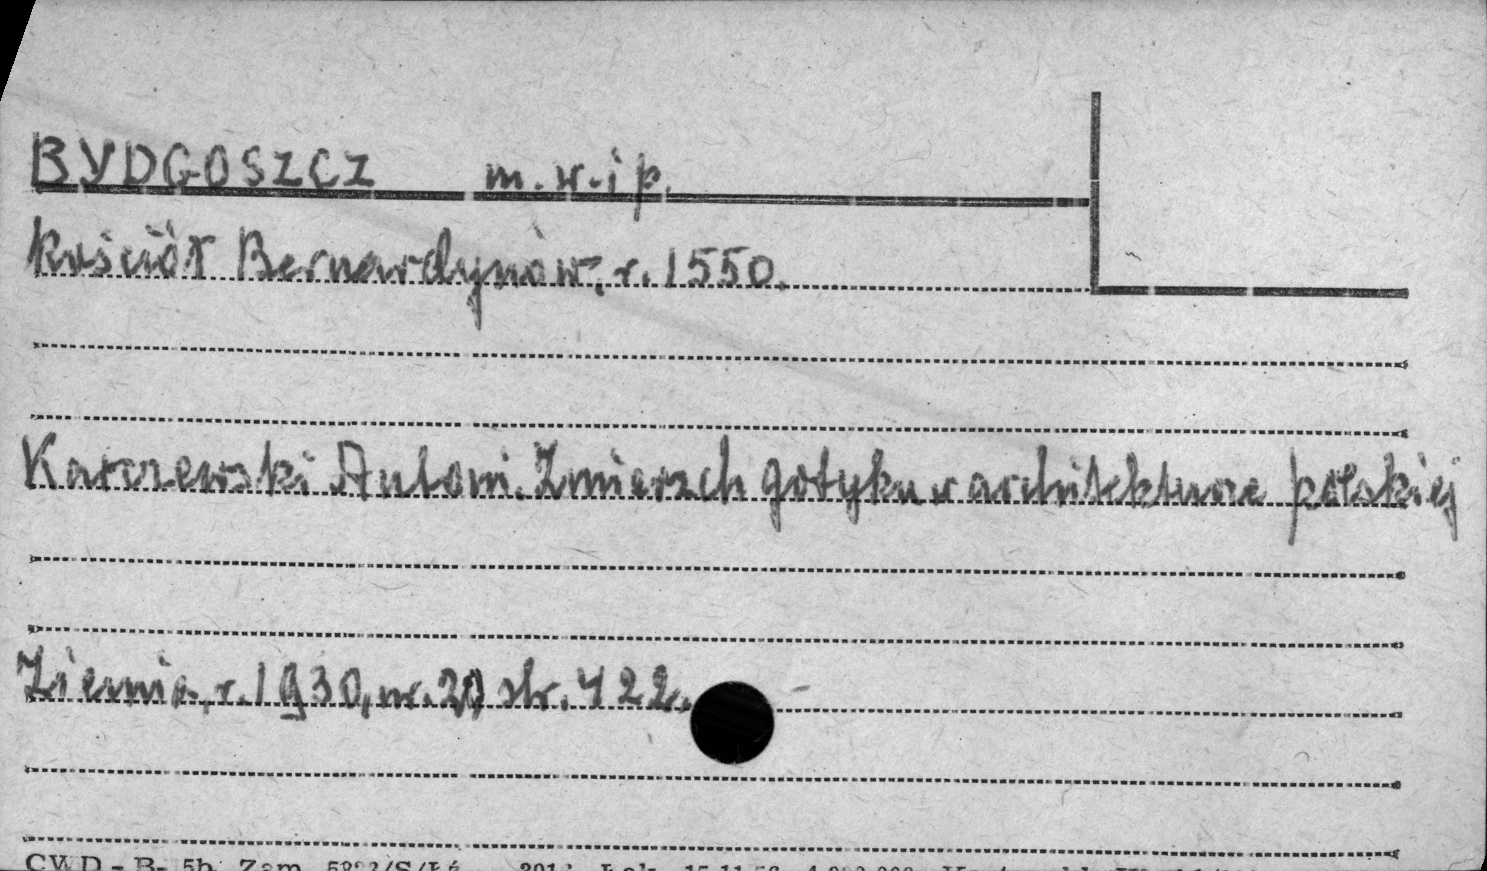 BYDGOSZCZ m. w. i p.
kościół Bernardynów, r. 1550.
Karczewski Antoni. Zmierzch gotyku w architekturze polskiej
Ziemia, r. 1930, nr. 20, str. 422.
CWD - B- 5b. Zam.